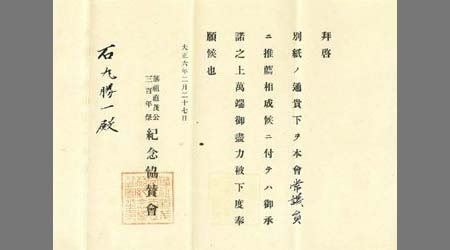 拜啓
別紙ノ通貴下ヲ本會常議員
ニ推薦相成候ニ付テハ御承
諾之上萬端御盡力被下度奉
願候也
大正六年二月二十七日
藩祖直茂公
三百年祭
紀念協賛會
石丸勝一殿